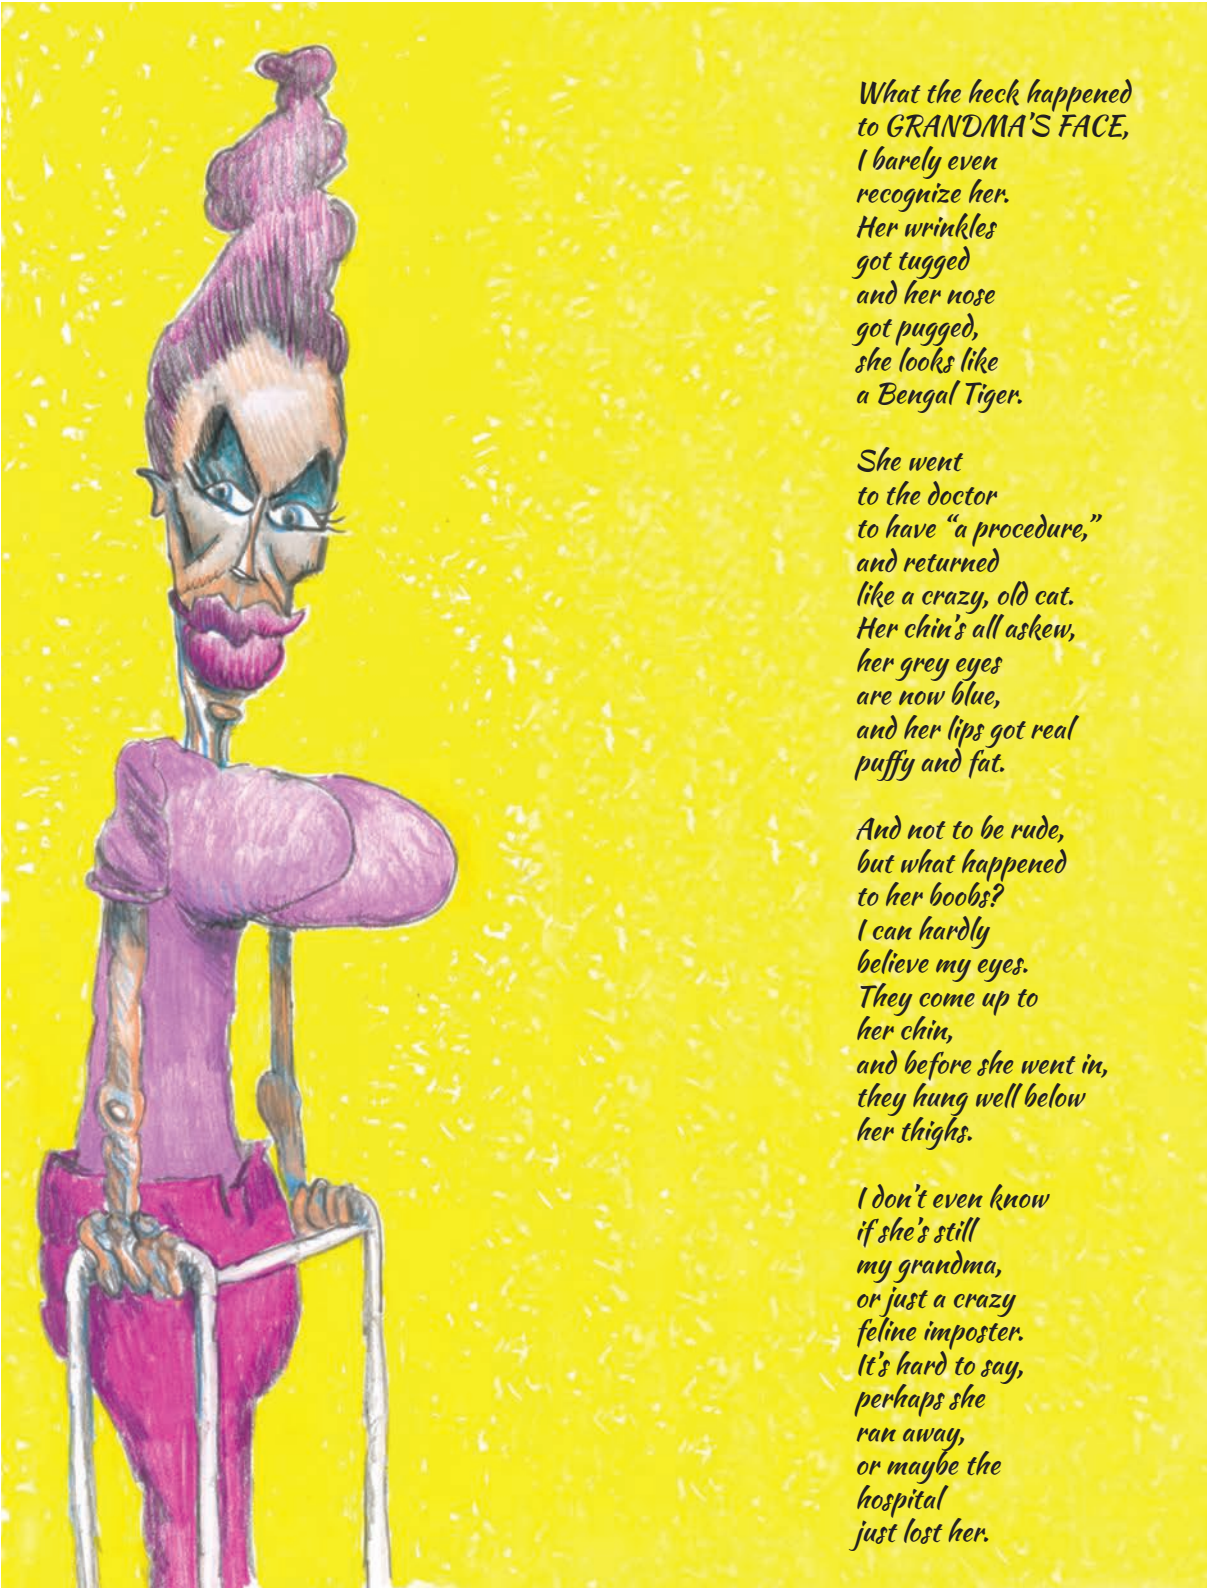 What the heck happened
to GRANDMA'S FACE,
I barely even
recognize her.
Her wrinkles
got tugged
and her nose
got pugged,
she looks like
a Bengal Tiger.
She went
to the doctor
to have “a procedure,”
and returned
like a crazy, old cat.
Her chin's all askew,
her grey eyes
are now blue,
and her lips got real
puffy and fat.
And not to be rude,
but what happened
to her boobs?
I can hardly
believe my eyes.
They come up to
her chin,
and before she went in,
they hung well below
her thighs.
I don't even know
if she's still
my grandma,
or just a crazy
feline imposter.
It's hard to say,
perhaps she
ran away,
or maybe the
hospital
just lost her.